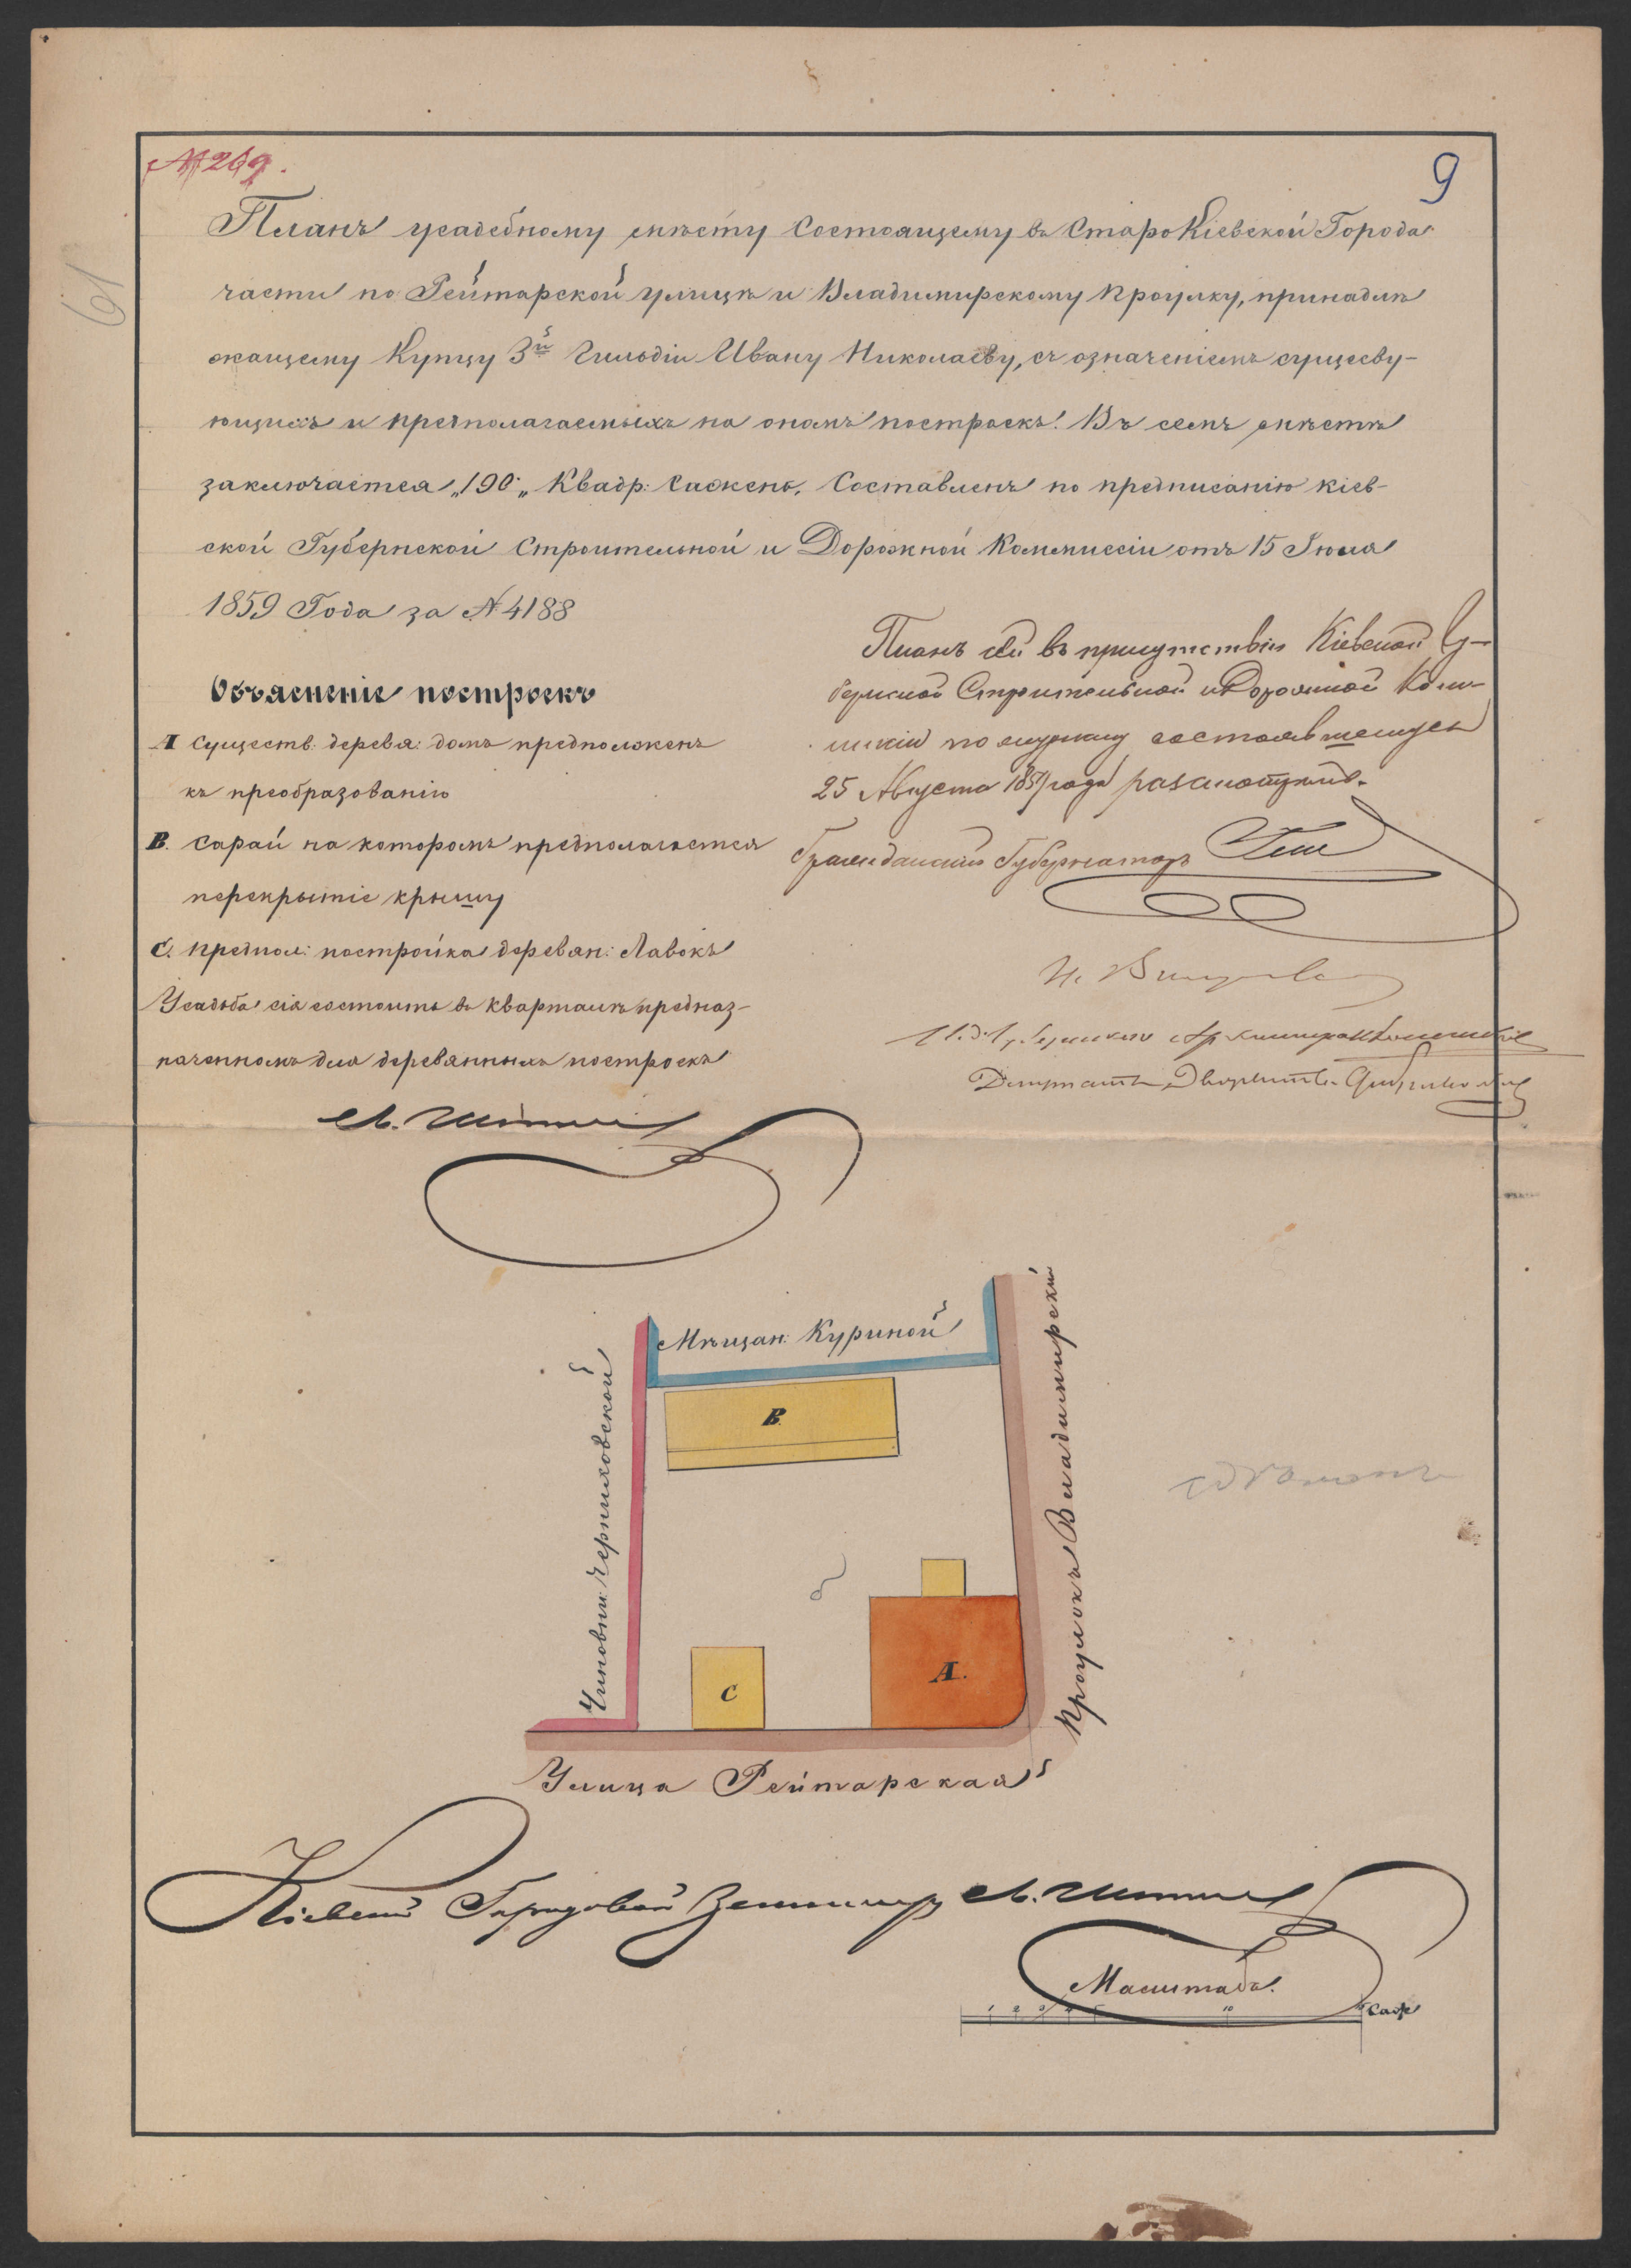 № 269.
9
61
Планъ усадебному мѣсту Состоящему въ СтароКіевской Города
части по Рейтарской улицѣ и Владимирскому проулку, принадлѣ
жащему Купцу 3й Гильдіи Ивану Николаеву, съ означеніемъ сущесву-
ющихъ и предполагаемыхъ на ономъ построекъ. Въ семъ мѣстѣ
заключается „190„ Квадр: Саженъ, Составленъ по предписанію Кіев-
ской Губернской Строительной и Дорожной Коммиссіи отъ 15 Іюля
1859 Года за № 4188
Объясненіе построекъ
А Существ: деревя: домъ предположенъ
къ преобразованію
В. Сарай на которомъ предполагается
перекрытіе крышу
С. предпол: постройка деревян: Лавокъ
Усадьба сія состоитъ въ кварталѣ предназ-
наченномъ для деревянныхъ построекъ
Планъ сей въ присутствіи Кіевской Гу-
бернской Строительной и Дорожной Ком-
мисіи по журналу состоявшемуся
25 Августа 1859 года разсмотренъ.
Гражданскій Губернаторъ
Архитектора
Депутатъ Дворянства
Мѣщан: Куриной
Чиновни: Черниховской
Проулокъ Владимирскій
В.
А.
С
Улица Рейтарская
Кіевскій Городовой Землемеръ
Масштабъ.
1 2 3 4 5 10 саж